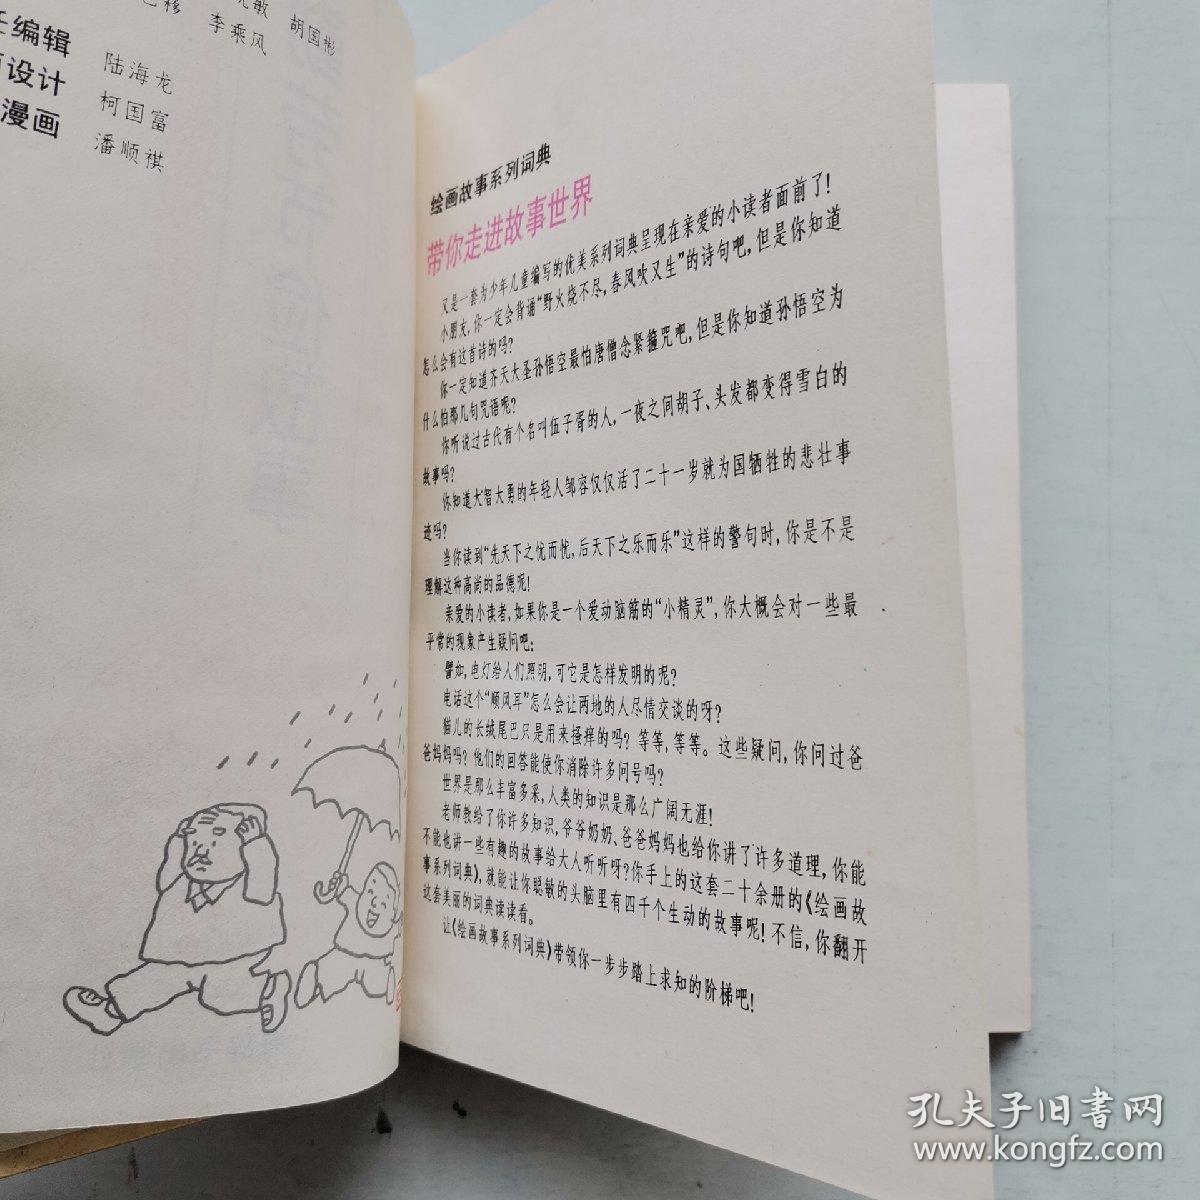 胡国彬
李乘风
编辑
陆海龙
设计
柯国富
漫画
潘顺祺
绘画故事系列词典
带你走进故事世界
又是一套为少年儿童编写的优美系列词典呈现在亲爱的小读者面前了！
小朋友，你一定会背诵“野火烧不尽，春风吹又生”的诗句吧，但是你知道
怎么会有这首诗的吗？
你一定知道齐天大圣孙悟空最怕唐僧念紧箍咒吧，但是你知道孙悟空为
什么怕那几句咒语呢？
你听说过古代有个名叫伍子胥的人，一夜之间胡子、头发都变得雪白的
故事吗？
你知道大智大勇的年轻人邹容仅仅活了二十一岁就为国牺牲的悲壮事
迹吗？
当你读到“先天下之忧而忧，后天下之乐而乐”这样的警句时，你是不是
理解这种高尚的品德呢！
亲爱的小读者，如果你是一个爱动脑筋的“小精灵”，你大概会对一些最
平常的现象产生疑问吧：
譬如，电灯给人们照明，可它是怎样发明的呢？
电话这个“顺风耳”怎么会让两地的人尽情交谈的呀？
猫儿的长绒尾巴只是用来搔痒的吗？等等，等等。这些疑问，你问过爸
爸妈妈吗？他们的回答能使你消除许多问号吗？
世界是那么丰富多采，人类的知识是那么广阔无涯！
老师教给了你许多知识，爷爷奶奶、爸爸妈妈也给你讲了许多道理，你能
不能也讲一些有趣的故事给大人听听呀？你手上的这套二十余册的《绘画故
事系列词典》，就能让你聪敏的头脑里有四千个生动的故事呢！不信，你翻开
这套美丽的词典读读看。
让《绘画故事系列词典》带领你一步步踏上求知的阶梯吧！
孔夫子旧书网
www.kongfz.com